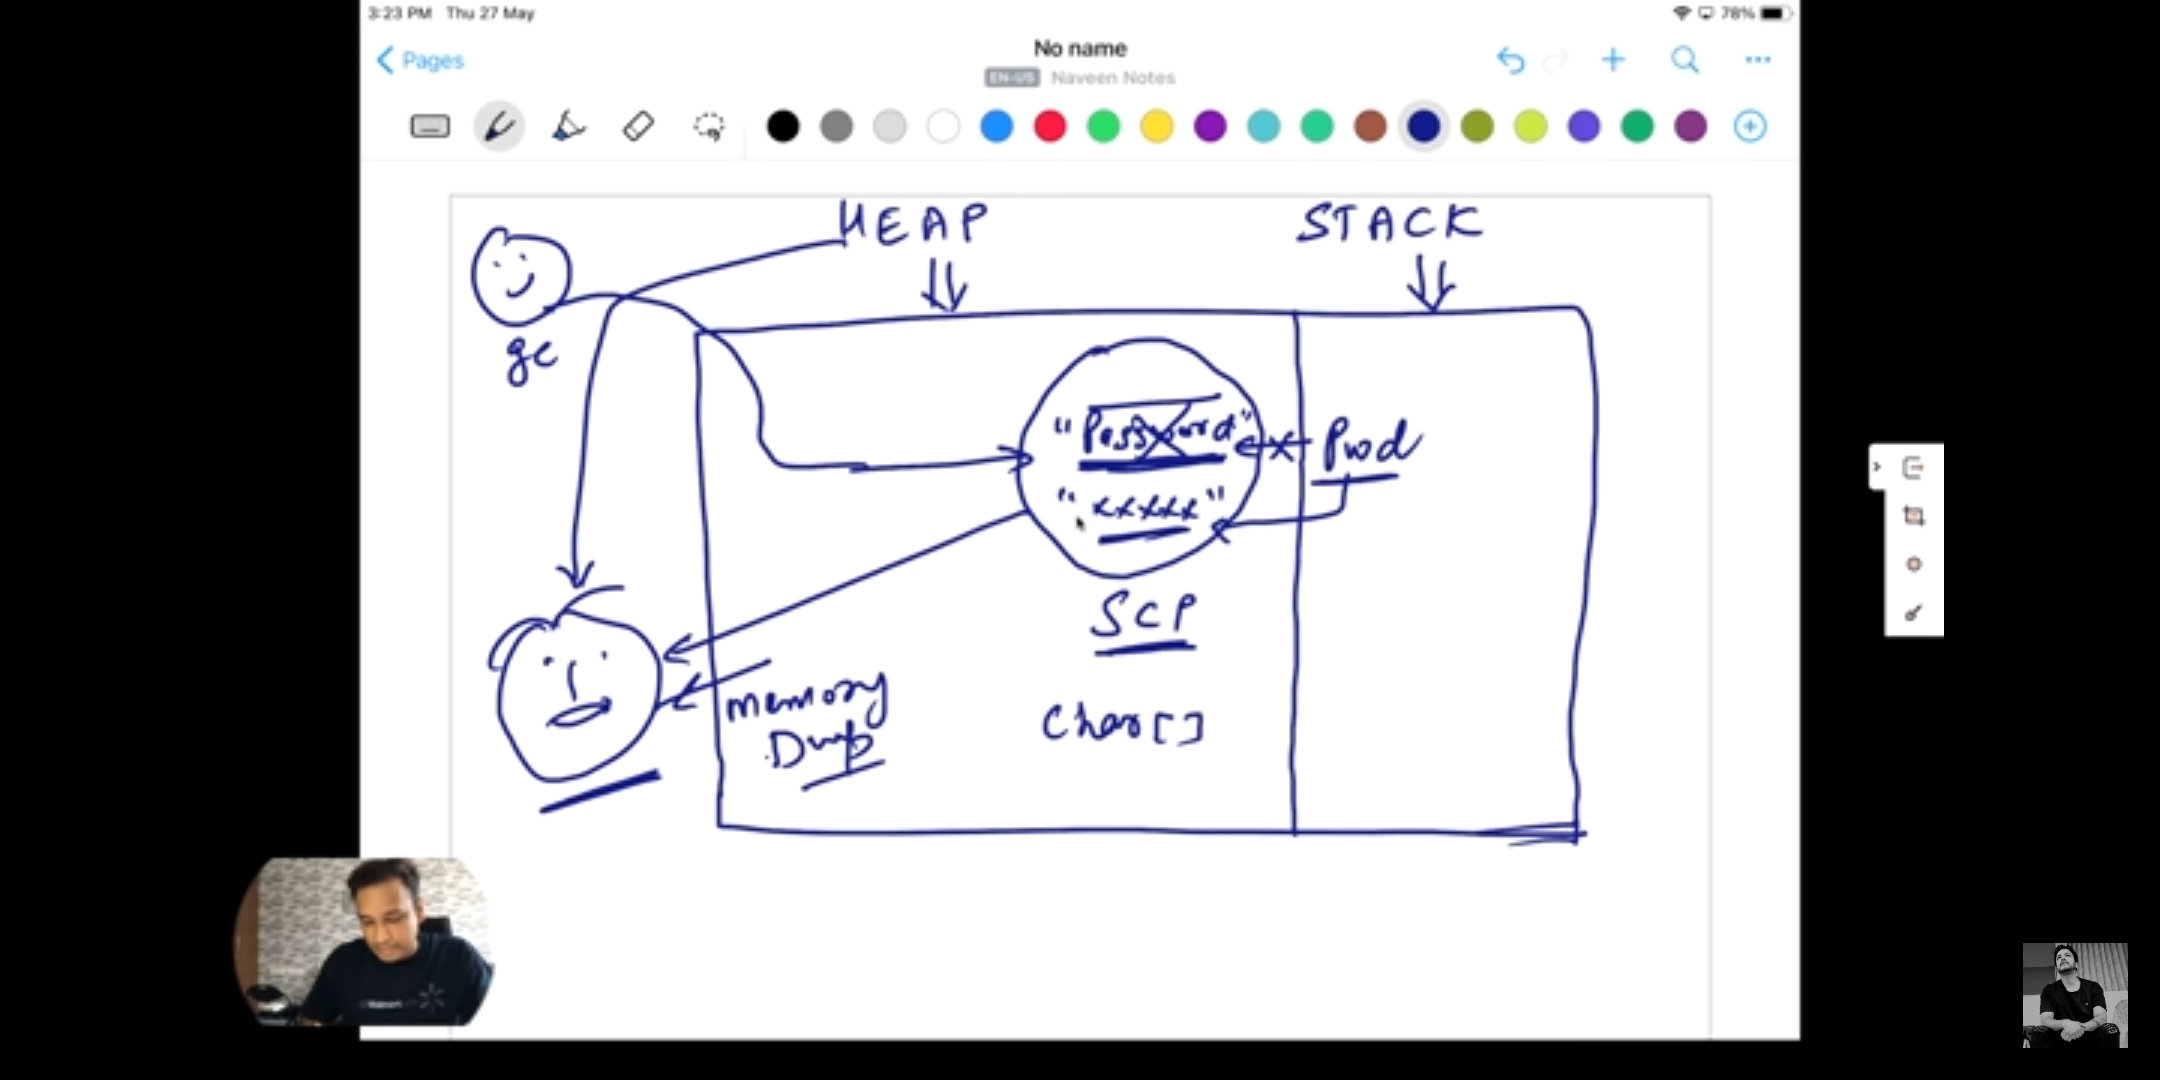 3:23 PM Thu 27 May
78%
Pages
No name
EN-US Naveen Notes
HEAP
STACK
gc
"Password"
Pwd
"xxxxx"
SCP
memory
Dump
Char[]